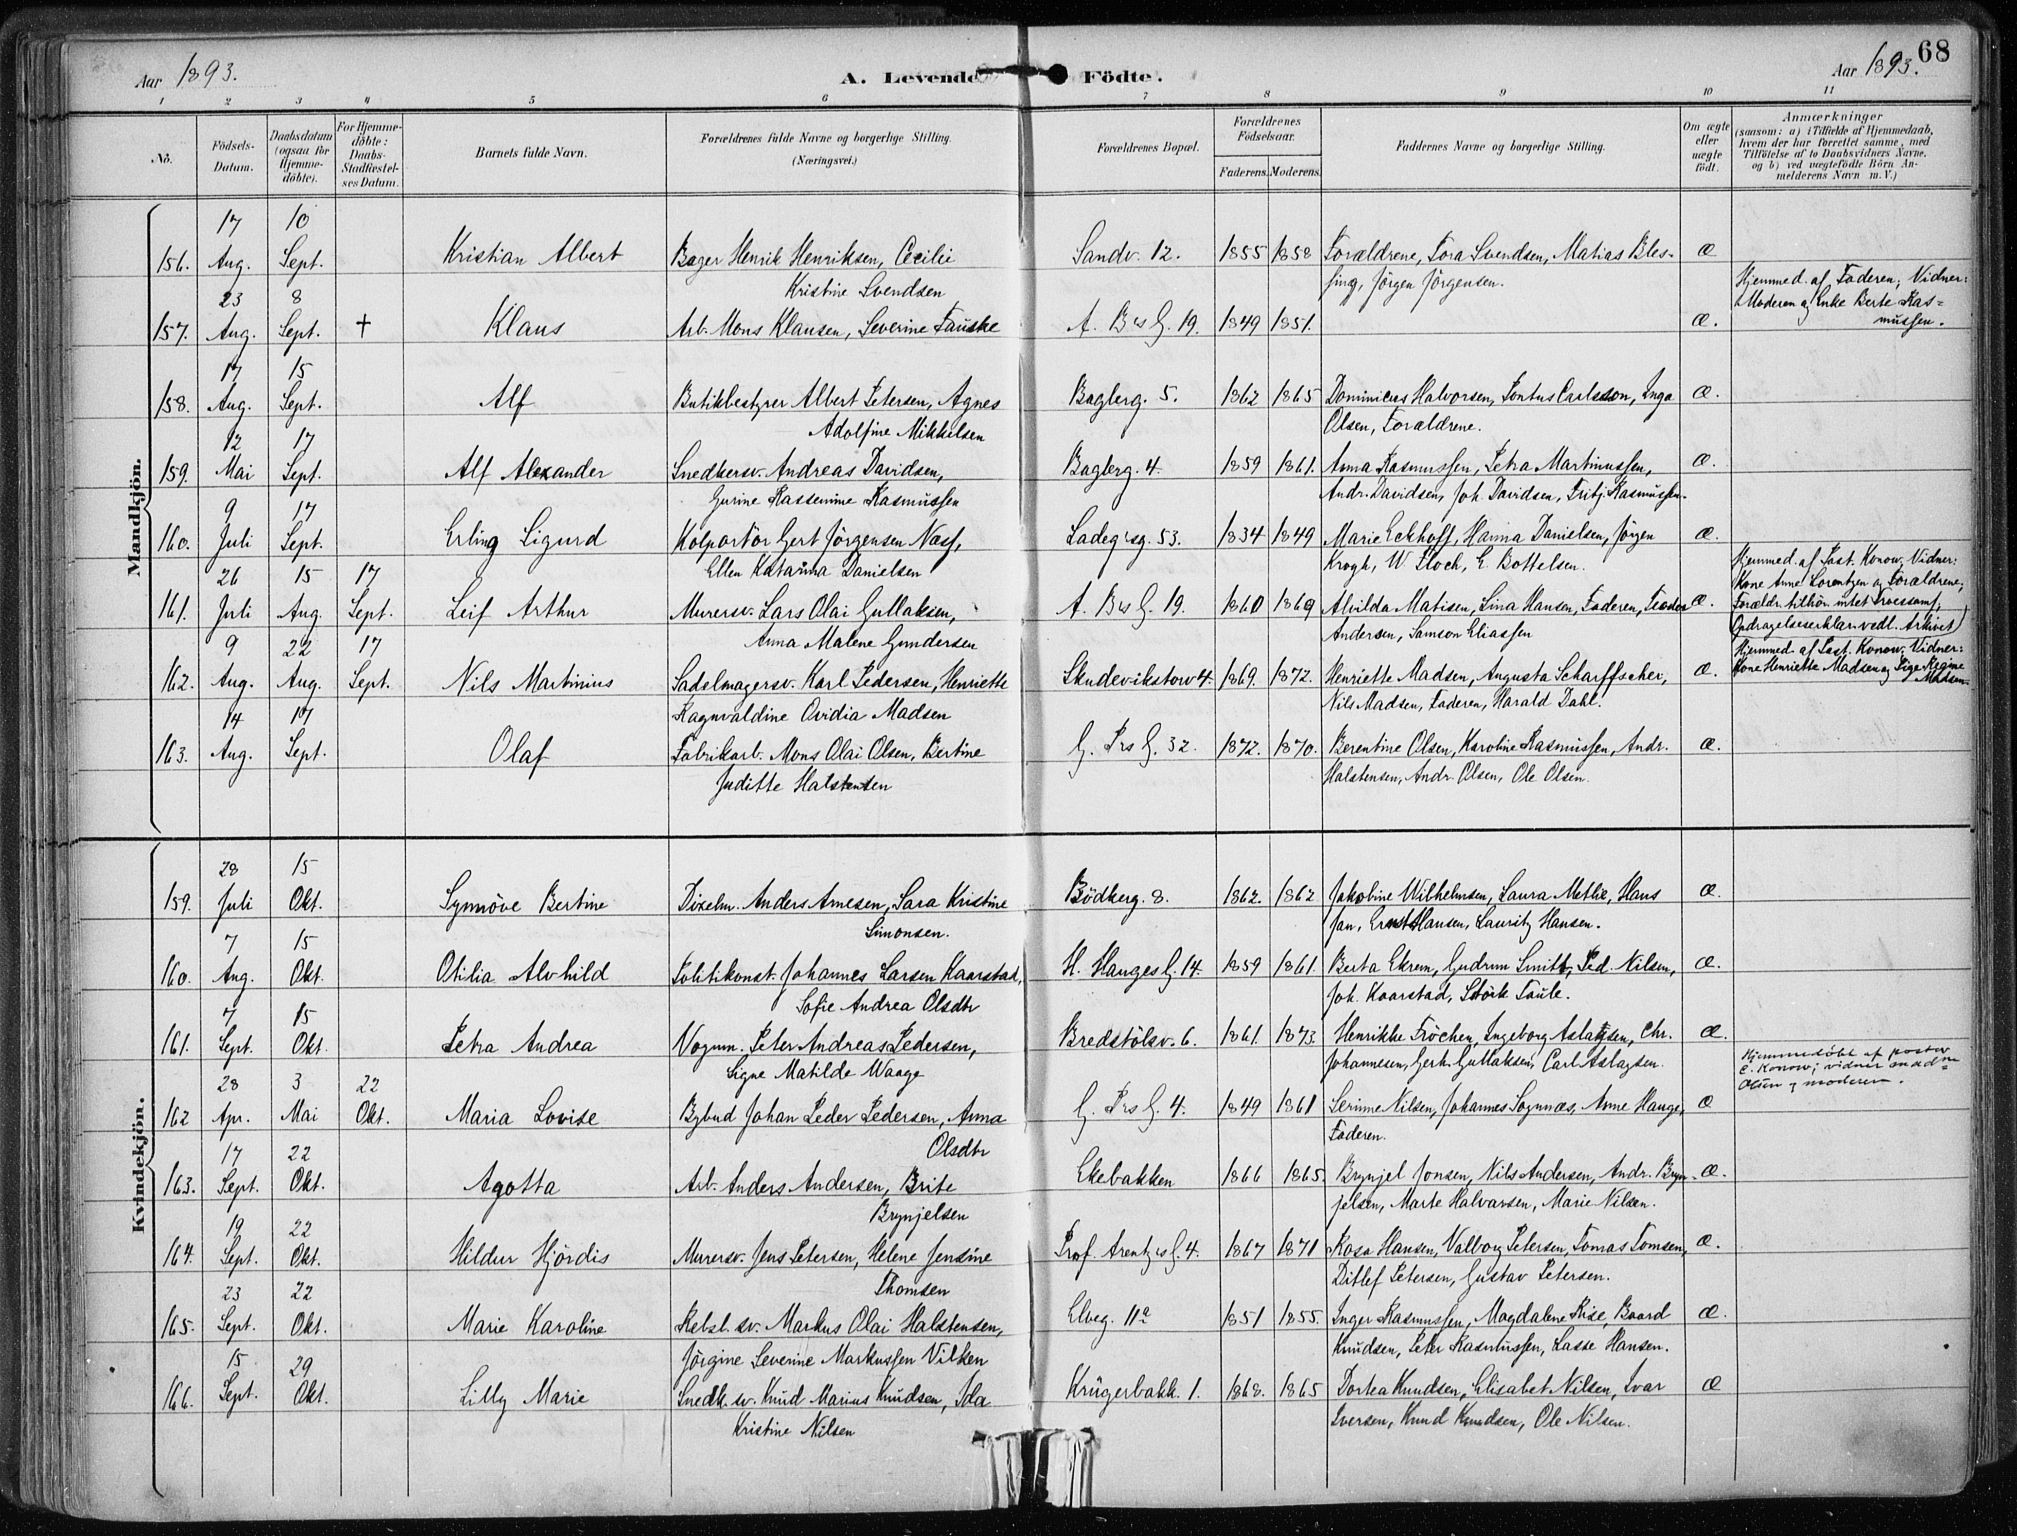 Aar 1893.
A. Levende Födte.
Aar 1893.
68
1 2 3 4 5 6 7 8 9 10 11
No.
Födsels-Datum.
Daabsdatum (ogsaa for Hjemme-döbte).
For Hjemme-döbte: Daabs-Stadfæstel-ses Datum.
Barnets fulde Navn.
Forældrenes fulde Navne og borgerlige Stilling. (Næringsvei.)
Forældrenes Bopæl.
Forældrenes Födselsaar.
Faderens. Moderens.
Faddernes Navne og borgerlige Stilling.
Om ægte eller uægte födt.
Anmærkninger
(saasom: a) i Tilfælde af Hjemmedaab,
hvem der har forrettet samme, med
Tilföielse af to Daabsvidners Navne.
og b) ved uægtefödte Börn An-
melderens Navn m. V.)
Mandkjön.
156. 17 Aug. 10 Sept. Kristian Albert Bager Henrik Henriksen, Cecilie Sandv. 12. 1855 1858 Forældrene, Tora Svendsen, Matias Bles- æ
Kristine Svendsen sing, Jörgen Jörgensen.
Hjemmed. af Faderen; Vidner:
Moderen og Enke Berte Ras-
mussen.
157. 23 Aug. 8 Sept. † Klaus Arb. Mons Klausen, Severine Fauske A. Bs G. 19. 1849 1851. æ.
158. 17 Aug. 15 Sept. Alf Butikbestyrer Albert Petersen, Agnes Bagberg. 5. 1862 1865 Dominicus Halvorsen, Pontus Carlsson, Inga æ.
Adolfine Mikkelsen Olsen, Forældrene.
159. 12 Mai 17 Sept. Alf Alexander Snedkersv. Andreas Davidsen, Bagberg. 4. 1859 1861. Anna Rasmussen, Petra Martinussen, æ.
Gurine Rassemine Rasmussen Andr. Davidsen, Joh. Davidsen, Fritj. Rasmussen.
160. 9 Juli 17 Sept. Erling Sigurd Kolportör Gert Jörgensen Næss, Ladegsg. 53. 1834 1849 Marie Eckhoff, Hanna Danielsen, Jörgen æ.
Ellen Katarina Danielsen Krogh, W. Floch, E. Bottelsen.
Hjemmed. af Past. Konow, Vidner:
Kone Anne Lorentzen og Forældrene;
Forældr. tilhör. intet Troessamf.
Opdragelseserklær. vedl. Arkivet
161. 26 Juli 15 Aug. 17 Sept. Leif Arthur Murersv. Lars Olai Gullaksen, A. Bs G. 19. 1860 1869 Alvilda Matisen, Lina Hansen, Faderen, Teodor æ.
Anna Malene Gundersen Andersen, Samson Eliassen
Hjemmed. af Past. Konow, Vidner:
Kone Henriette Madsen og Pige Regine
Madsen.
162. 9 Aug. 22 Aug. 17 Sept. Nils Martinius Sadelmagersv. Karl Pedersen, Henriette Skudevikstorv 4. 1869. 1872. Henriette Madsen, Augusta Scharffscher, æ.
Ragnvaldine Ovidia Madsen Nils Madsen, Faderen, Harald Dahl.
163. 14 Aug. 17 Sept. Olaf Fabrikarb. Mons Olai Olsen, Bertine G. Prs G. 32. 1872. 1870. Berentine Olsen, Karoline Rasmussen, Andr. æ.
Juditte Halstensen Halstensen, Andr. Olsen, Ole Olsen.
Kvindekjön.
159. 28 Juli 15 Okt. Synnöve Bertine Dixelm. Anders Arnesen, Sara Kristine Bödkerg. 8. 1862. 1862 Jakobine Wilhelmsen, Laura Methie, Hans æ.
Simonsen. Jan, Ernst Hansen, Lauritz Hansen.
160. 7 Aug. 15 Okt. Otilia Alvhild Politikonst. Johannes Larsen Kaarstad, H. Hauges G. 14. 1859 1861. Berta Ekrem, Gudrun Smitt, Ped. Nilsen, æ.
Sofie Andrea Olsdtr Joh. Kaarstad, Störk Taule.
161. 7 Sept. 15 Okt. Petra Andrea Vognm. Peter Andreas Pedersen, Bredstölsv. 6. 1861. 1873. Henrikke Fröchen, Ingeborg Aslaksen, Chr. æ.
Signe Matilde Waage Johannesen, Gerh. Gullaksen, Carl Aslagsen.
Hjemmedöbt af pastor
C. Konow; vidner mad-
Olsen og moderen.
162 28 Apr. 3 Mai 22 Okt. Maria Lovise Bybud Johan Peder Pedersen, Anna G. Prs G. 4. 1849 1861 Serinne Nilsen, Johannes Sognnæs, Arne Hauge, æ
Olsdtr Faderen.
163. 17 Sept. 22 Okt. Agotta Arb. Anders Andersen, Brite Ekebakken 1866 1865. Brynjel Jonsen, Nils Andersen, Andr. Bryn- æ.
Brynjelsen jelsen, Marte Halvarsen, Marie Nilsen.
164. 19 Sept. 22 Okt. Hildur Hjördis Murersv. Jens Petersen, Helene Jensine Prof. Arentz's G. 4. 1867 1871 Rosa Hansen, Valborg Petersen, Tomas Tomsen, æ.
Thomsen Ditlef Petersen, Gustav Petersen.
165. 23 Sept. 22 Okt. Marie Karoline Rebsl. sv. Markus Olai Halstensen, Elveg. 11a 1851 1855. Inger Rasmussen, Magdalene Rise, Baard æ.
Jörgine Severine Markussen Vilken Knudsen, Peter Rasmussen, Lasse Hansen.
166. 15 Sept. 29 Okt. Lilly Marie Snedk. sv. Knud Marius Knudsen, Ida Krügerbakk. 1. 1868. 1865 Dortea Knudsen, Elisabet Nilsen, Ivar æ
Kristine Nilsen Iversen, Knud Knudsen, Ole Nilsen.